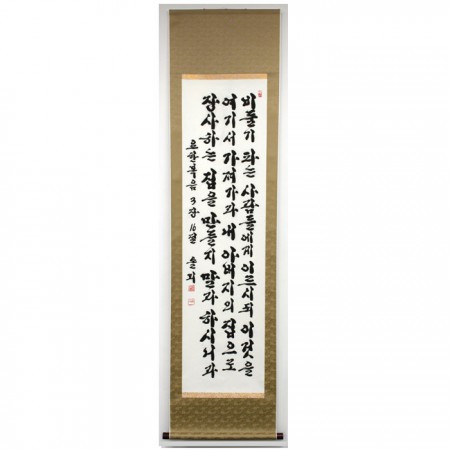 비둘기 파는 사람들에게 이르시되 이것을
여기서 가져가라 내 아버지의 집으로
장사하는 집을 만들지 말라 하시니라
요한복음 3장 16절